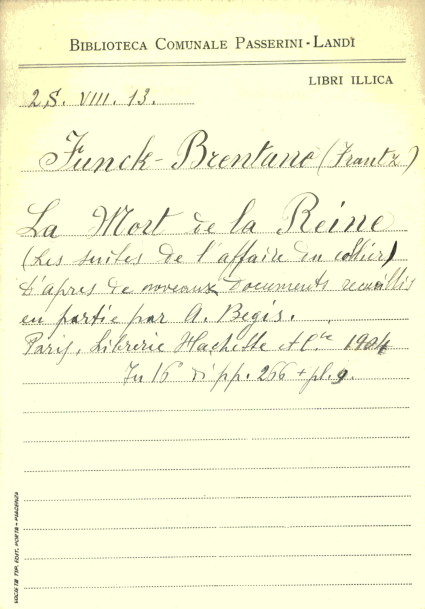 BIBLIOTECA COMUNALE PASSERINI-LANDI
LIBRI ILLICA
2S. VIII. 13.
Funck-Brentano (Frantz)
La Mort de la Reine
(Les suites de l'affaire du collier)
D'apres de noveaux documents recueillis
en partie par A. Begis.
Paris, Librerie Hachette et C.ie 1904
In 16° di pp. 266 + pl. 9.
SOCIETÀ TIP. EDIT. PORTA - PIACENZA